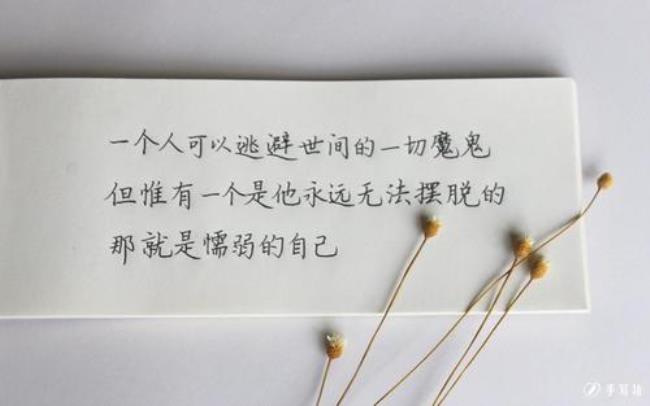 一个人可以逃避世间的一切魔鬼
但惟有一个是他永远无法摆脱的
那就是懦弱的自己
手写拾